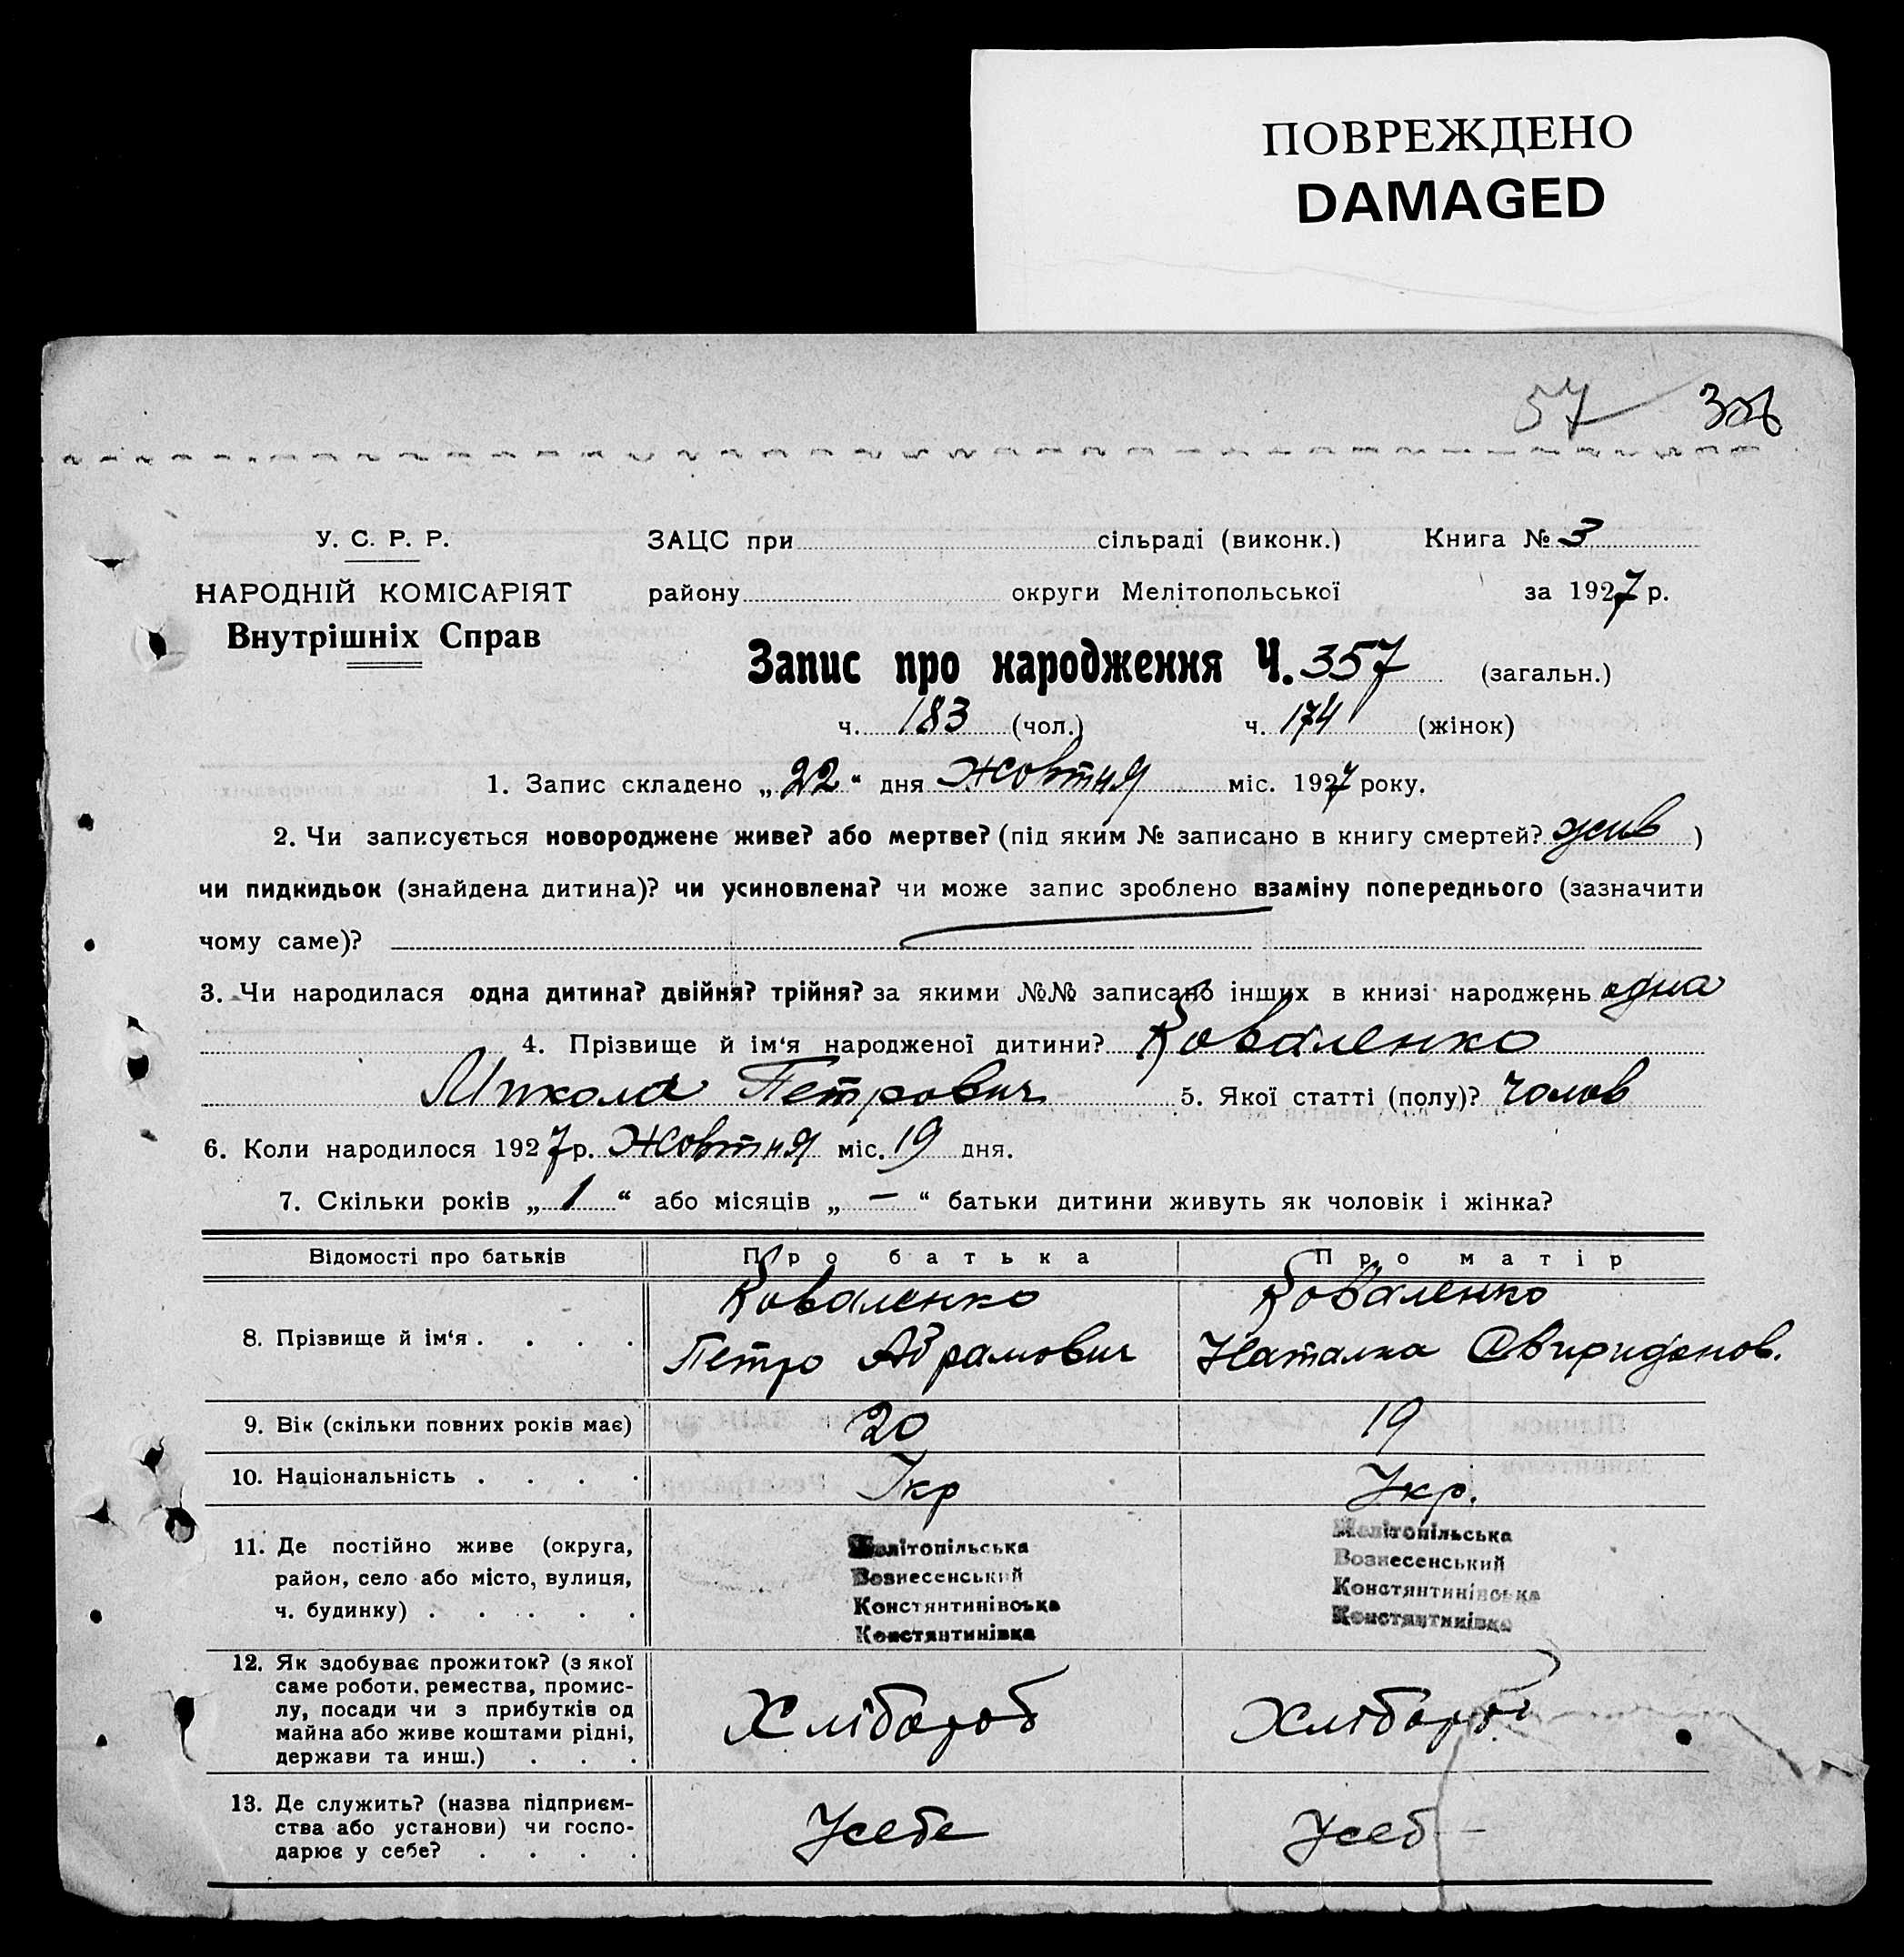 ПОВРЕЖДЕНО
DAMAGED
57
У. С. Р. Р.
НАРОДНІЙ КОМІСАРІЯТ
Внутрішніх Справ
ЗАЦС при сільраді (виконк.) Книга № 3
району округи Мелітопольської за 1927 р.
Запис про народження Ч. 357 (загальн.)
ч. 183 (чол.) ч. 174 (жінок)
1. Запис складено „22“ дня Жовтня міс. 1927 року.
2. Чи записується новороджене живе? або мертве? (під яким № записано в книгу смертей? жив )
чи пидкидьок (знайдена дитина)? чи усиновлена? чи може запис зроблено взаміну попереднього (зазначити
чому саме)?
3. Чи народилася одна дитина? двійня? трійня? за якими №№ записано інших в книзі народжень одна
4. Прізвище й ім‘я народженої дитини? Коваленко
Микола Петрович 5. Якої статті (полу)? Чолов
6. Коли народилося 1927 р. Жовтня міс. 19 дня.
7. Скільки років „1“ або місяців „—“ батьки дитини живуть як чоловік і жінка?
Відомості про батьків Про батька Про матір
8. Прізвище й ім‘я . . . .
Коваленко
Петро Абрамович
Коваленко
Наталка Свиридонов.
9. Вік (скільки повних років має) 20 19
10. Національність . . . . Укр Укр.
11. Де постійно живе (округа,
район, село або місто, вулиця,
ч. будинку) . . . . .
Мелітопільська
Вознесенський
Констянтинівська
Констянтинівка
Мелітопільська
Вознесенський
Констянтинівська
Констянтинівка
12. Як здобуває прожиток? (з якої
саме роботи, ремества, промис-
лу, посади чи з прибутків од
майна або живе коштами рідні,
держави та инш.) . . .
Хлібороб
Хлібороб
13. Де служить? (назва підприєм-
ства або установи) чи госпо-
дарює у себе? . . . .
Усебе
Усеб